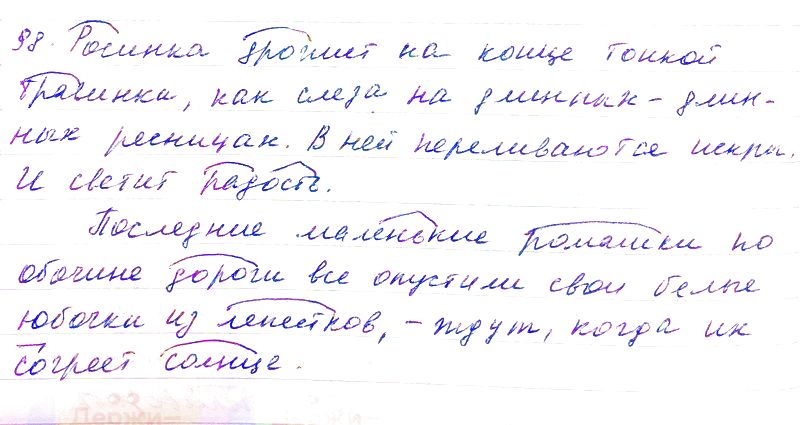 98. Росинка дрожит на конце тонкой
травинки, как слеза на длинных - длин-
ных ресницах. В ней переливаются искры.
И светит радость.
Последние маленькие ромашки по
обочине дороги все опустили свои белые
юбочки из лепестков, - ждут, когда их
согреет солнце.
Держи-